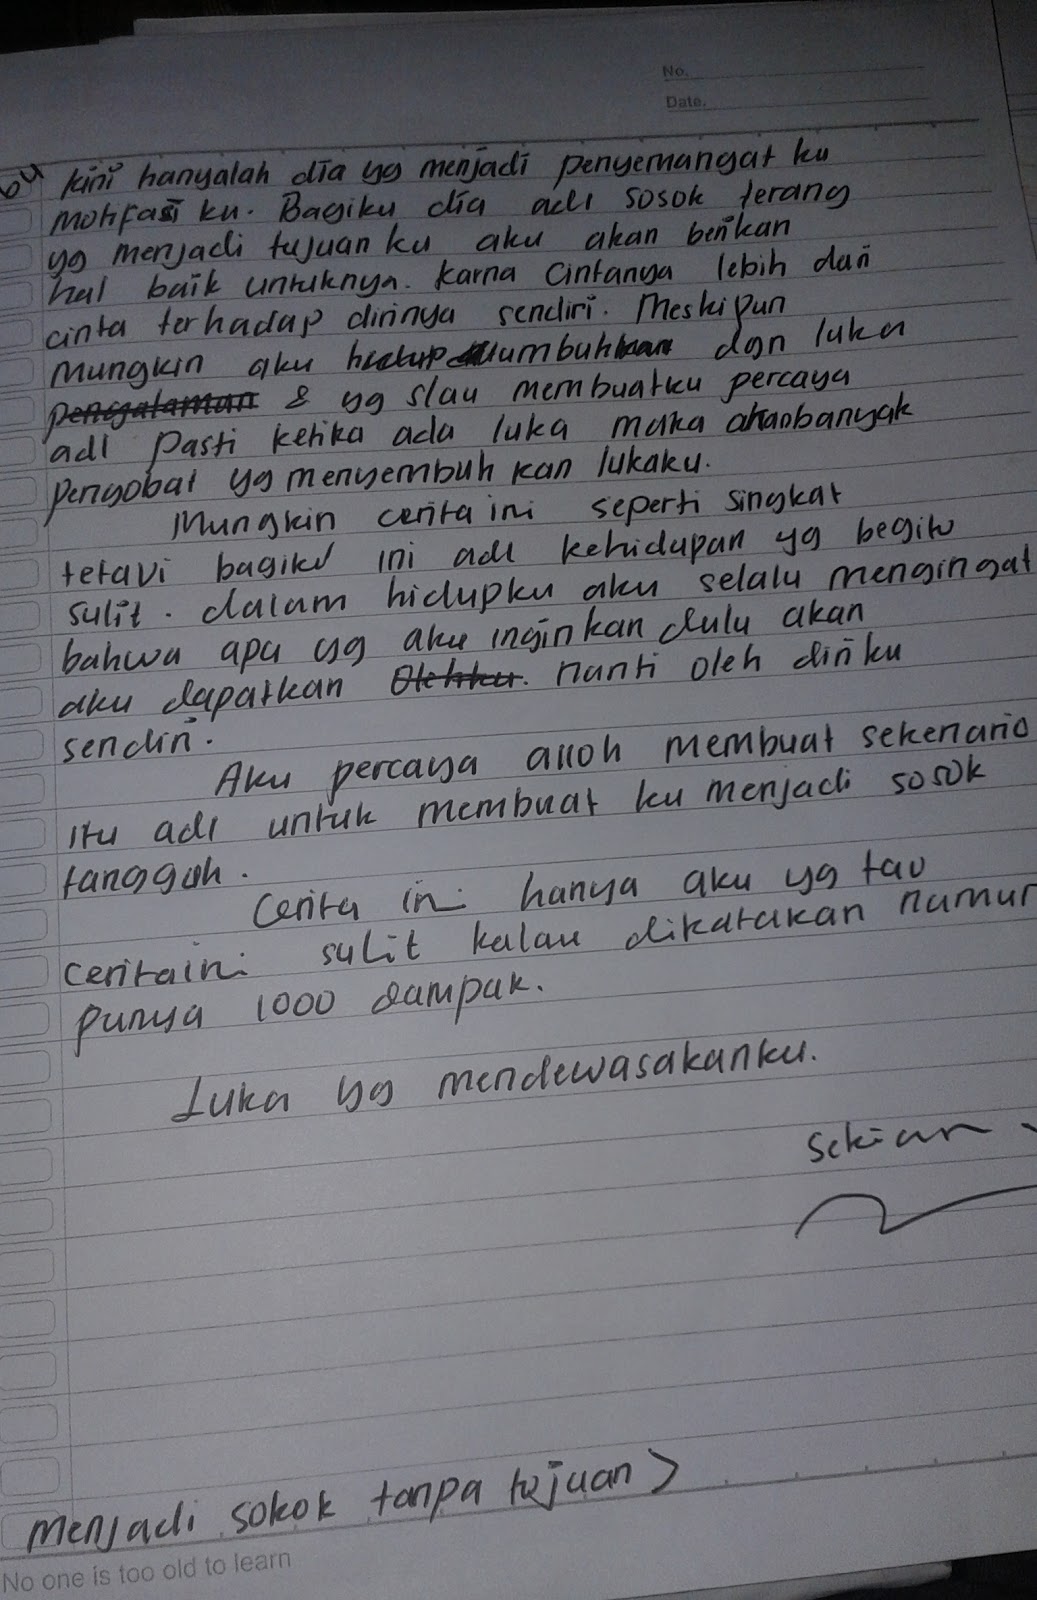 No.
Date.
kini hanyalah dia yg menjadi penyemangat ku
motifasi ku. Bagiku dia adl sosok terang
yg menjadi tujuan ku aku akan berikan
hal baik untuknya. karna cintanya lebih dari
cinta terhadap dirinya sendiri. Meskipun
mungkin aku tumbuh dgn luka
pengalaman & yg slau membuatku percaya
adl pasti ketika ada luka maka akan banyak
pengobat yg menyembuh kan lukaku.
Mungkin cerita ini seperti singkat
tetavi bagiku ini adl kehidupan yg begitu
sulit. dalam hidupku aku selalu mengingat
bahwa apa yg aku inginkan dulu akan
aku dapatkan nanti oleh diri ku
sendiri.
Aku percaya alloh membuat sekenario
itu adl untuk membuat ku menjadi sosok
tangguh.
Cerita ini hanya aku yg tau
cerita ini sulit kalau dikatakan namun
punya 1000 dampak.
Luka yg mendewasakanku.
Sekian
menjadi sokok tanpa tujuan >
No one is too old to learn